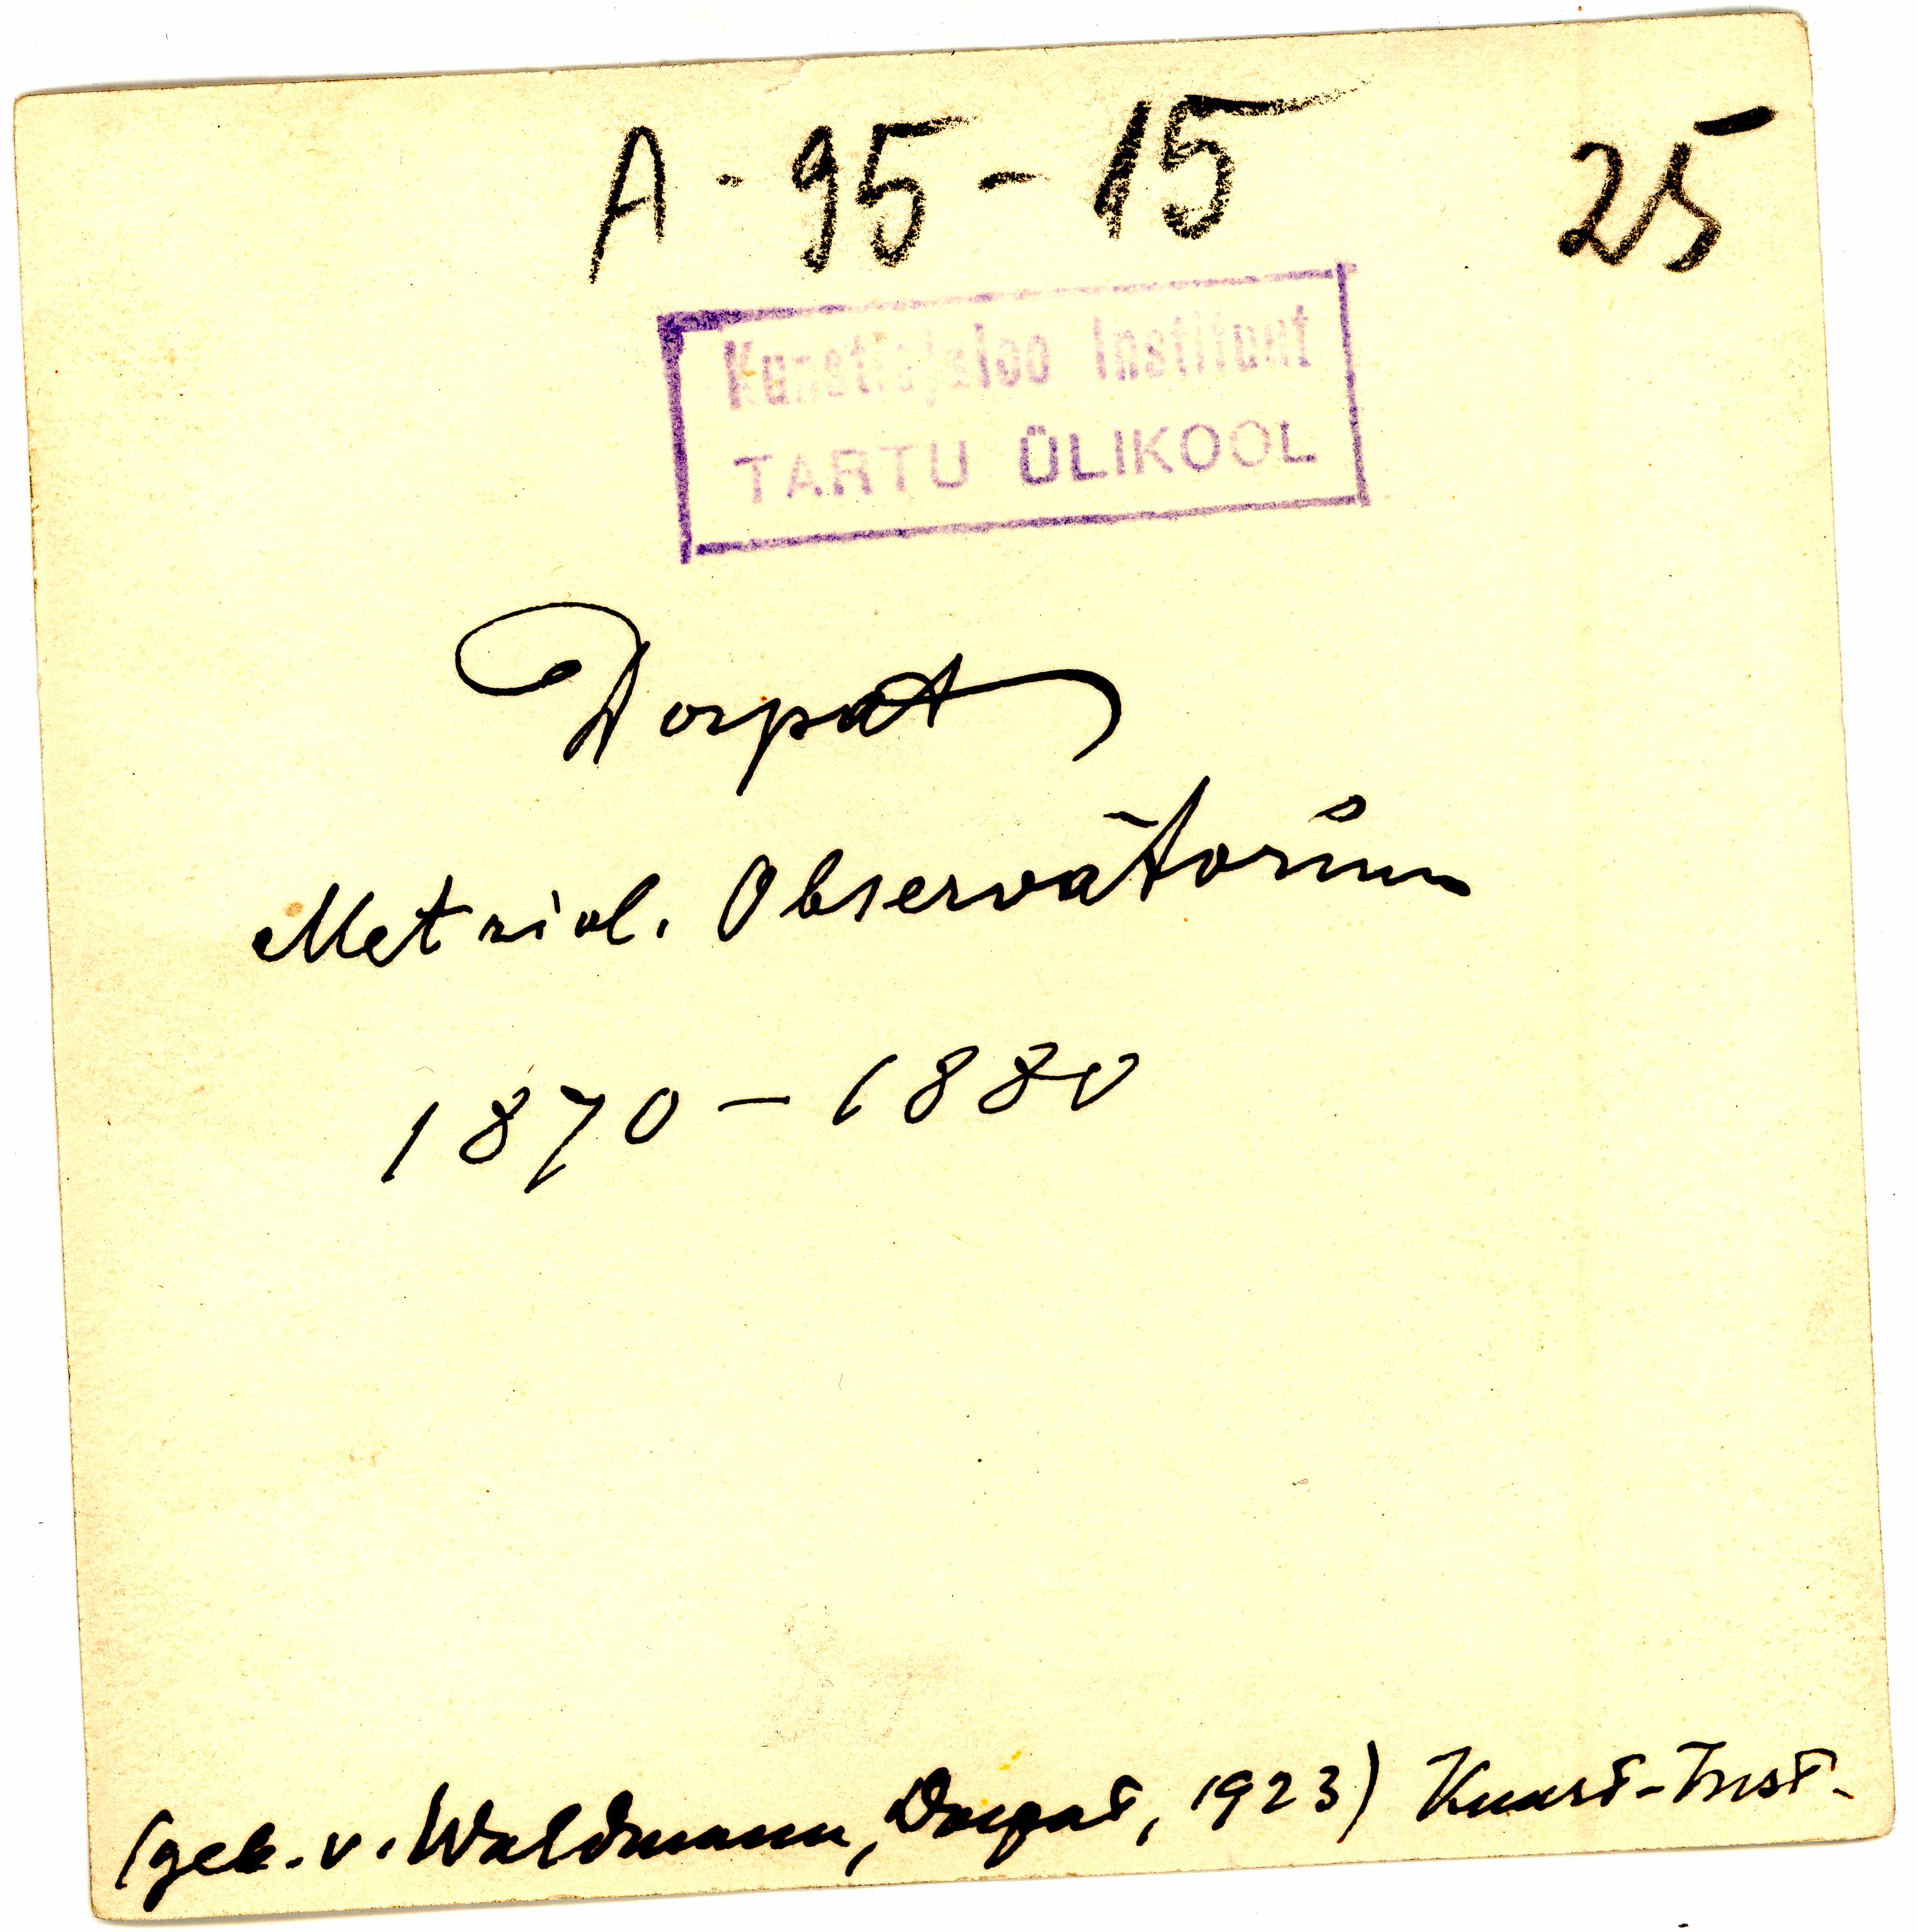 A-95-15 25
Kunstiajaloo Instituut
TARTU ÜLIKOOL
Dorpat
Metriol. Observatorium
1870-1880
(gek. v. Waldmann, Dorpat, 1923) Kunst-Inst.